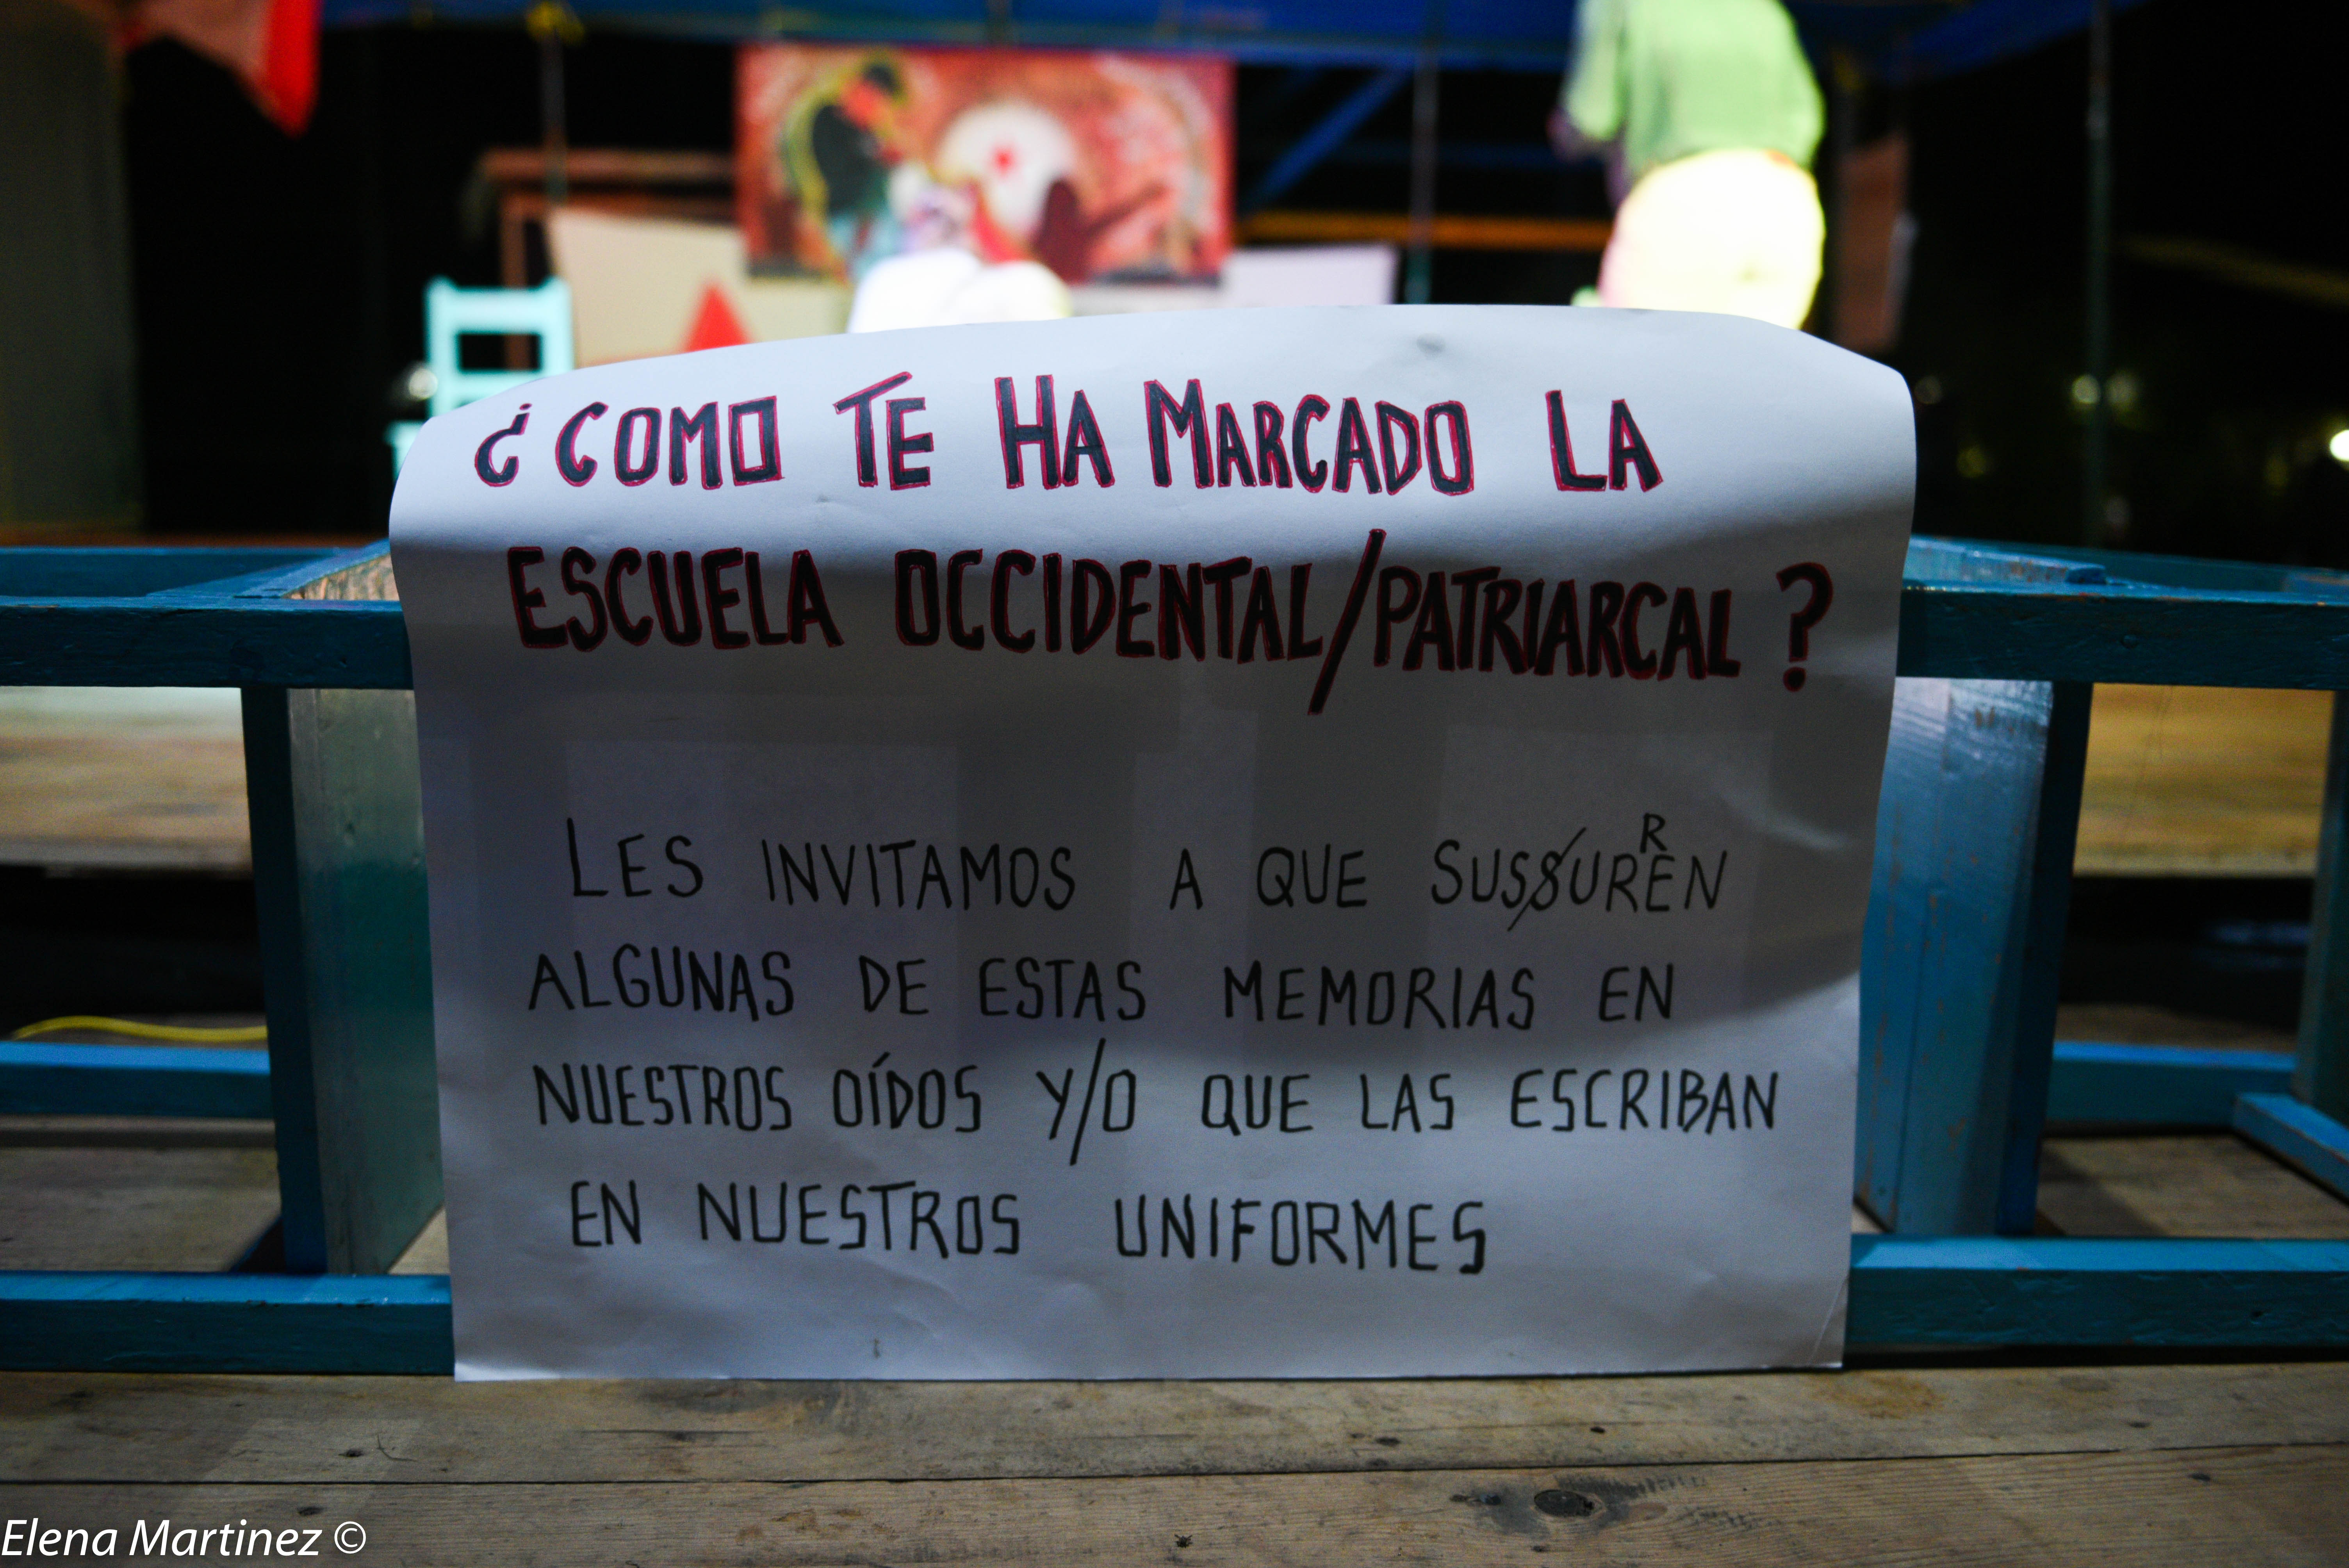 ¿COMO TE HA MARCADO LA
ESCUELA OCCIDENTAL/PATRIARCAL?
LES INVITAMOS A QUE SUSURREN
ALGUNAS DE ESTAS MEMORIAS EN
NUESTROS OÍDOS Y/O QUE LAS ESCRIBAN
EN NUESTROS UNIFORMES
Elena Martinez ©